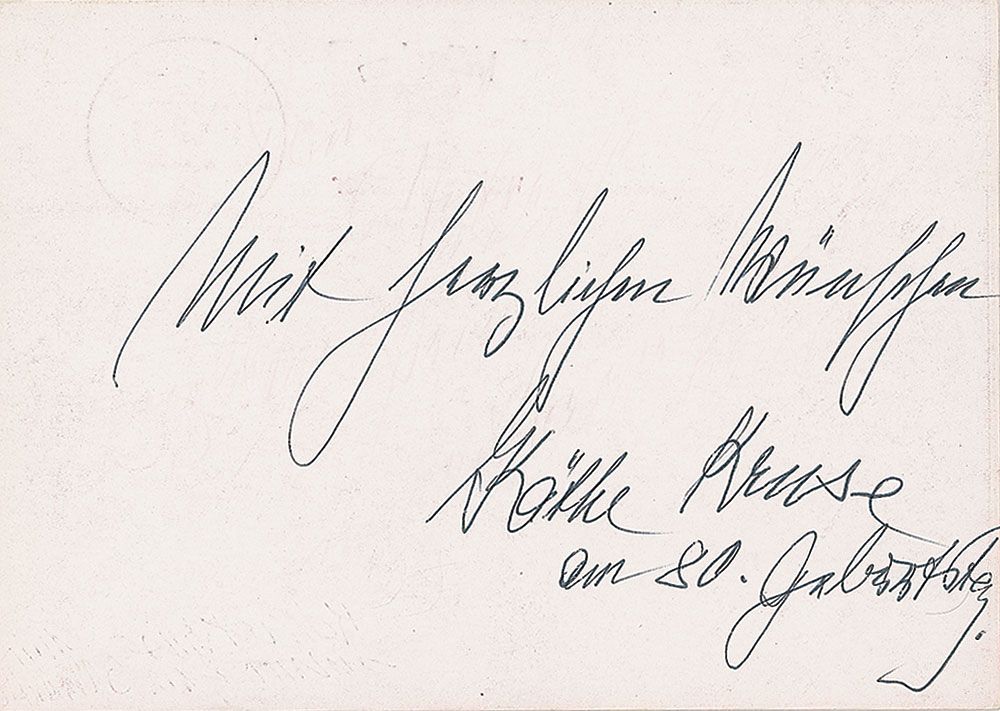 Mit herzlichen Wünschen
Käthe Kruse
am 80. Geburtstag.